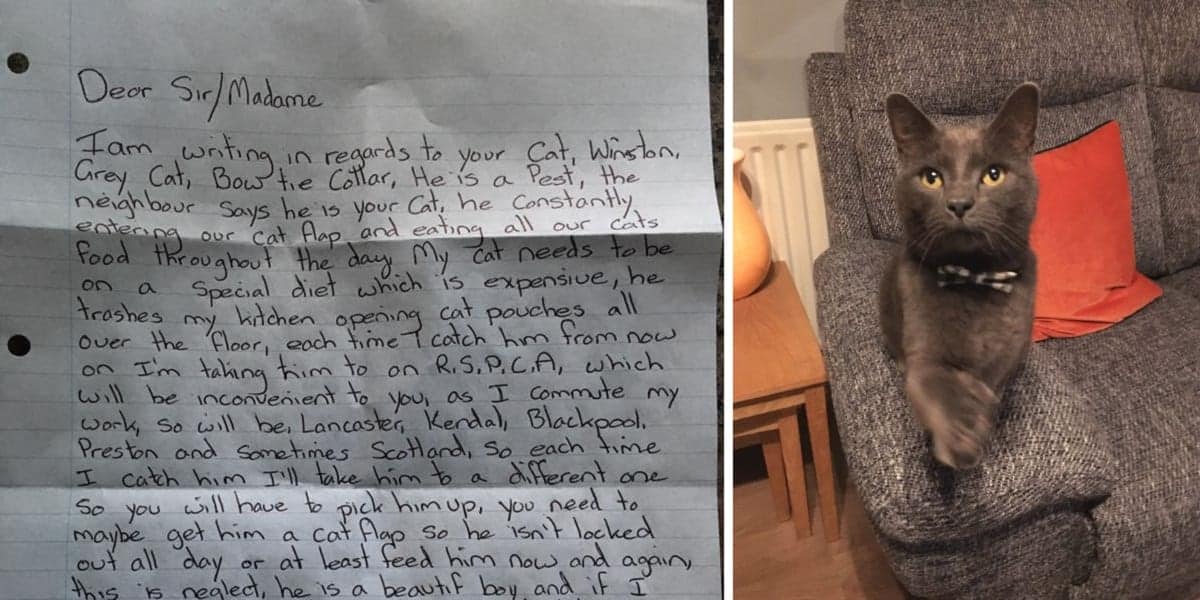 Dear Sir/Madame
I am writing in regards to your Cat, Winston,
Grey Cat, Bow tie Collar, He is a Pest, the
neighbour Says he is your Cat, he Constantly
entering our Cat flap and eating all our cats
food throughout the day, My cat needs to be
on a Special diet which is expensive, he
trashes my kitchen opening cat pouches all
over the floor, each time I catch him from now
on I'm taking him to an R.S.P.C.A, which
will be inconvenient to you, as I Commute my
work, so will be, Lancaster, Kendal, Blackpool,
Preston and Sometimes Scotland, So each time
I catch him I'll take him to a different one
So you will have to pick him up, you need to
maybe get him a cat flap so he isn't locked
out all day or at least feed him now and again,
this is neglect, he is a beautif boy and if I